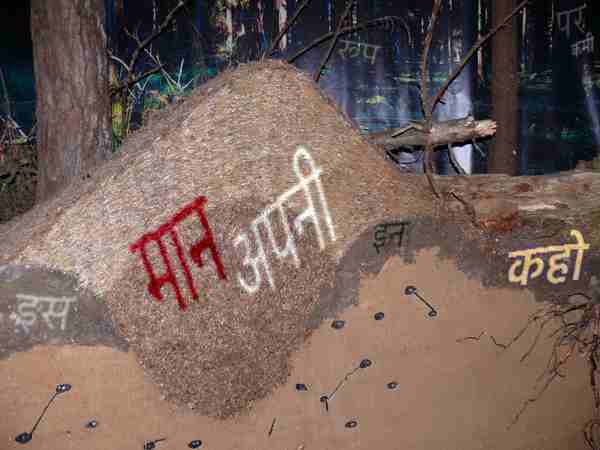 रूप
पर
कभी
मान अपनी
इन
कहो
इस